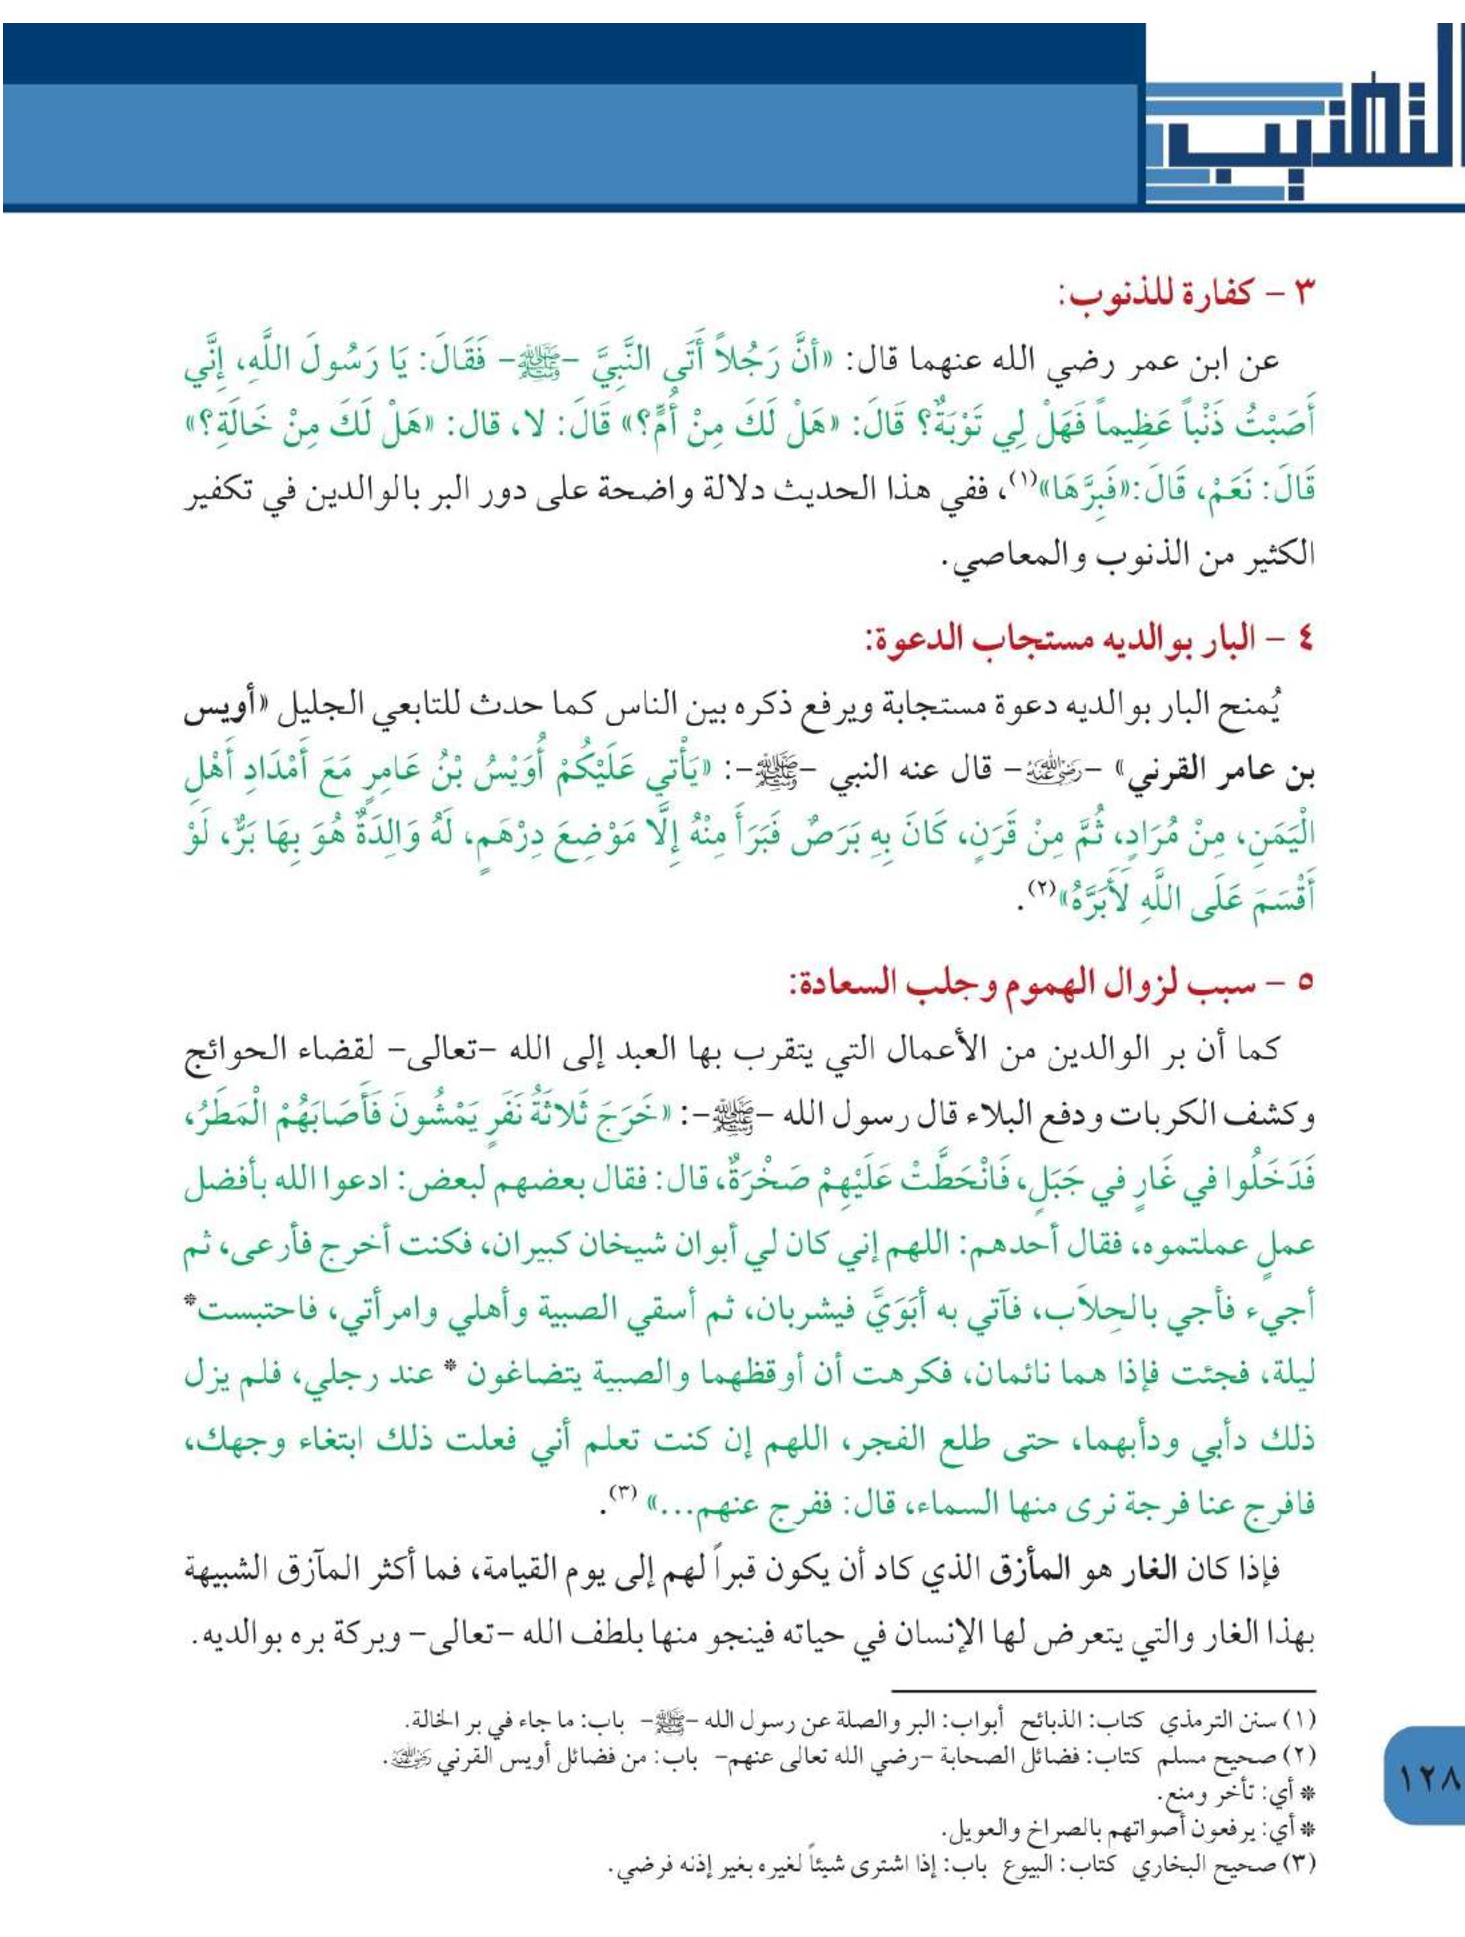 التهذيب
٣ – كفارة للذنوب:
عن ابن عمر رضي الله عنهما قال: «أَنَّ رَجُلاً أَتَى النَّبِيَّ –ﷺ– فَقَالَ: يَا رَسُولَ اللَّهِ، إِنِّي
أَصَبْتُ ذَنْباً عَظِيماً فَهَلْ لِي تَوْبَةٌ؟ قَالَ: «هَلْ لَكَ مِنْ أُمٍّ؟» قَالَ: لا، قال: «هَلْ لَكَ مِنْ خَالَةٍ؟»
قَالَ: نَعَمْ، قَالَ:«فَبِرَّهَا»(١)، ففي هذا الحديث دلالة واضحة على دور البر بالوالدين في تكفير
الكثير من الذنوب والمعاصي.
٤ – البار بوالديه مستجاب الدعوة:
يُمنح البار بوالديه دعوة مستجابة ويرفع ذكره بين الناس كما حدث للتابعي الجليل «أويس
بن عامر القرني» –رضي الله عنه– قال عنه النبي –ﷺ–: «يَأْتي عَلَيْكُمْ أُوَيْسُ بْنُ عَامِرٍ مَعَ أَمْدَادِ أَهْلِ
الْيَمَنِ، مِنْ مُرَادٍ، ثُمَّ مِنْ قَرَنٍ، كَانَ بِهِ بَرَصٌ فَبَرَأَ مِنْهُ إِلَّا مَوْضِعَ دِرْهَمٍ، لَهُ وَالِدَةٌ هُوَ بِهَا بَرٌّ، لَوْ
أَقْسَمَ عَلَى اللَّهِ لَأَبَرَّهُ»(٢).
٥ – سبب لزوال الهموم وجلب السعادة:
كما أن بر الوالدين من الأعمال التي يتقرب بها العبد إلى الله –تعالى– لقضاء الحوائج
وكشف الكربات ودفع البلاء قال رسول الله –ﷺ–: «خَرَجَ ثَلاثَةُ نَفَرٍ يَمْشُونَ فَأَصَابَهُمْ الْمَطَرُ،
فَدَخَلُوا في غَارٍ في جَبَلٍ، فَانْحَطَّتْ عَلَيْهِمْ صَخْرَةٌ، قال: فقال بعضهم لبعض: ادعوا الله بأفضل
عملٍ عملتموه، فقال أحدهم: اللهم إني كان لي أبوان شيخان كبيران، فكنت أخرج فأرعى، ثم
أجيء فأجي بالحِلاَب، فآتي به أبَوَيَّ فيشربان، ثم أسقي الصبية وأهلي وامرأتي، فاحتبست*
ليلة، فجئت فإذا هما نائمان، فكرهت أن أوقظهما والصبية يتضاغون * عند رجلي، فلم يزل
ذلك دأبي ودأبهما، حتى طلع الفجر، اللهم إن كنت تعلم أني فعلت ذلك ابتغاء وجهك،
فافرج عنا فرجة نرى منها السماء، قال: ففرج عنهم...» (٣).
فإذا كان الغار هو المأزق الذي كاد أن يكون قبراً لهم إلى يوم القيامة، فما أكثر المآزق الشبيهة
بهذا الغار والتي يتعرض لها الإنسان في حياته فينجو منها بلطف الله –تعالى– وبركة بره بوالديه.
(١) سنن الترمذي كتاب: الذبائح أبواب: البر والصلة عن رسول الله –ﷺ– باب: ما جاء في بر الخالة.
(٢) صحيح مسلم كتاب: فضائل الصحابة –رضي الله تعالى عنهم– باب: من فضائل أويس القرني رضي الله عنه.
* أي: تأخر ومنع.
* أي: يرفعون أصواتهم بالصراخ والعويل.
(٣) صحيح البخاري كتاب: البيوع باب: إذا اشترى شيئاً لغيره بغير إذنه فرضي.
١٢٨